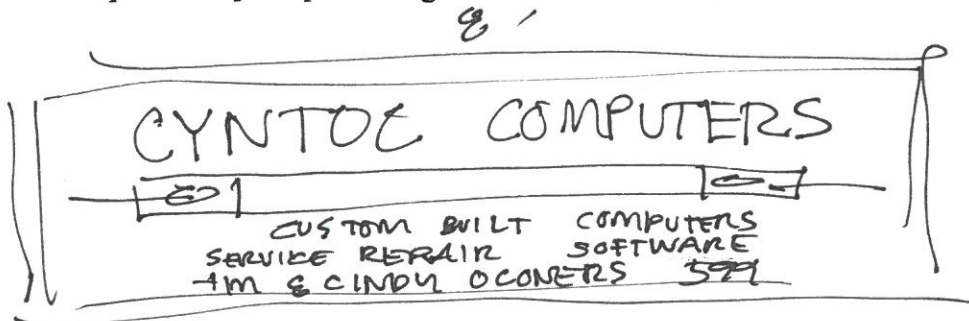 8'
CYNTOC COMPUTERS
CUSTOM BUILT COMPUTERS
SERVICE REPAIR SOFTWARE
& CINDY OCONERS 599